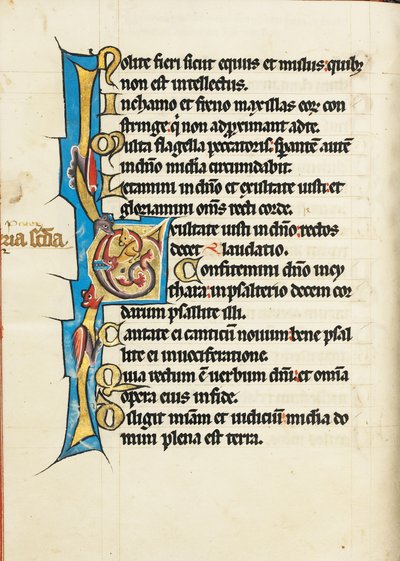 Nolite fieri sicut equus et mulus: quib;
non est intellectus.
In chamo et freno maxillas eoꝝ con
stringe: q̇ non adproximant ad te.
Multa flagella peccatoris: sperantē autē
in dn̄o mīa circumdabit.
Letamini in dn̄o et exultate iusti: et
gloriamini om̄s recti corde.
Exultate iusti in dn̄o: rectos
decet collaudatio.
Confitemini dn̄o in cy
thara: in psalterio decem cor
darum psallite illi.
Cantate ei canticū nouum: bene psal
lite ei in uociferatione.
Quia rectum ē uerbum dn̄i: et om̄ia
opera eius in fide.
Diligit mīam et iudiciū: mīa do
mini plena est terra.